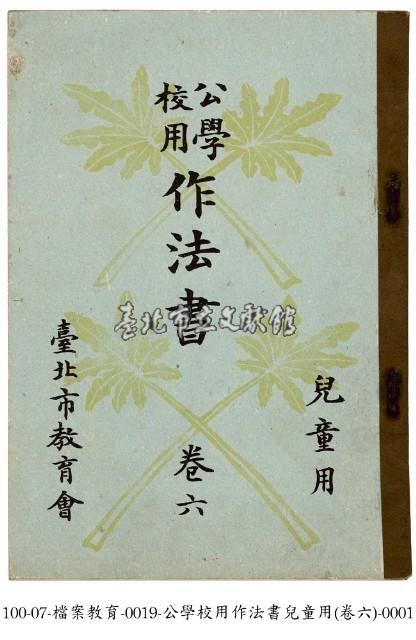 公學
校用
作法書
兒童用
卷六
臺北市教育會
臺北市立文獻館
100-07-檔案教育-0019-公學校用作法書兒童用(卷六)-0001